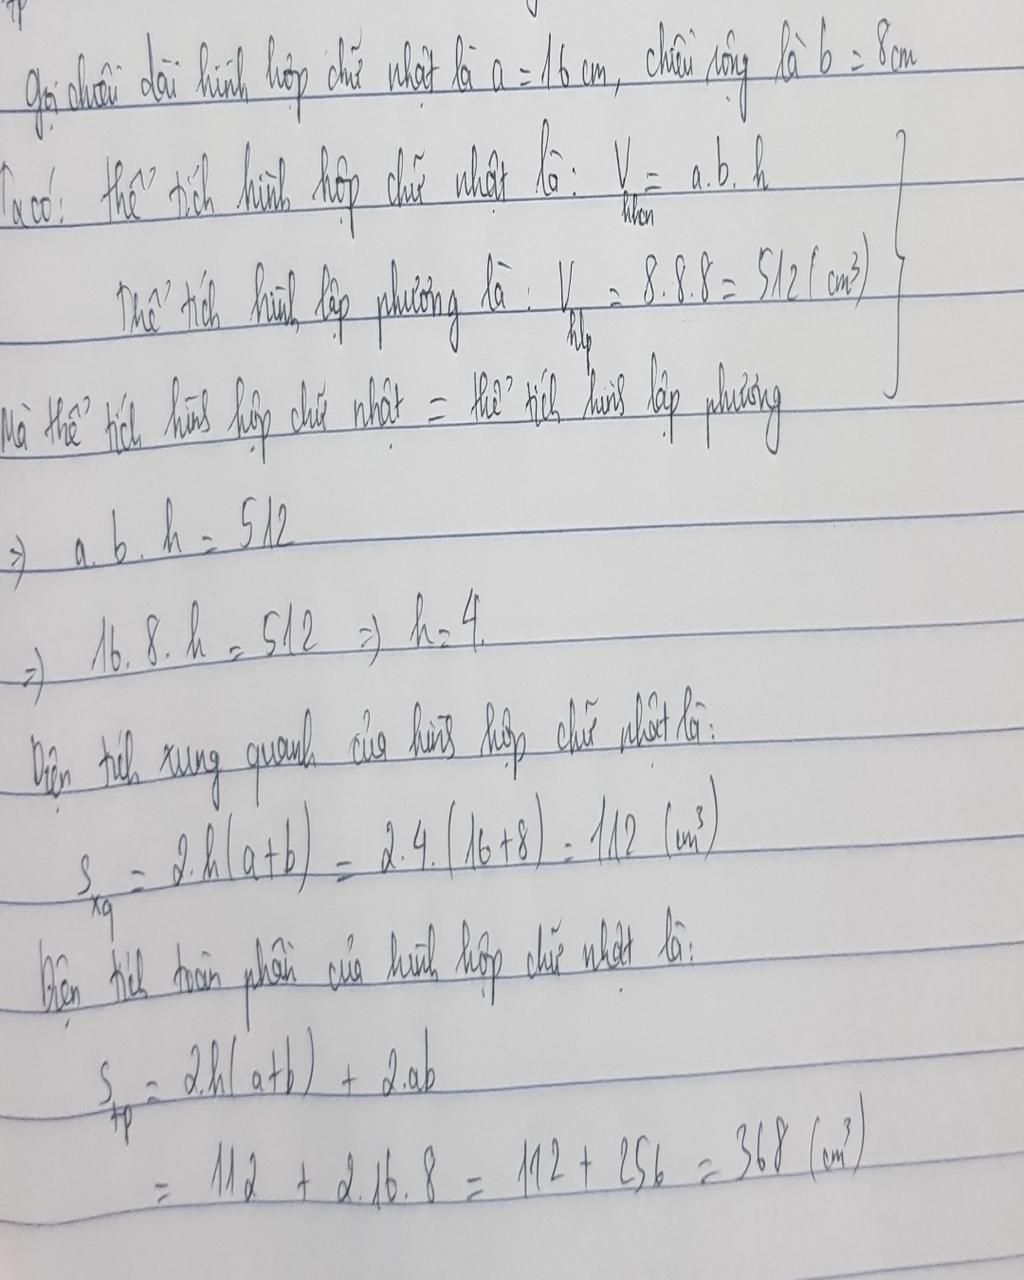 Gọi chiều dài hình hộp chữ nhật là a = 16 cm, chiều rộng là b = 8cm
Ta có: thể tích hình hộp chữ nhật là: V hhcn = a.b.h
Thể tích hình lập phương là: V hlp = 8.8.8 = 512 (cm³)
Mà thể tích hình hộp chữ nhật = thể tích hình lập phương
=> a.b.h = 512
=> 16.8.h = 512 => h = 4.
Diện tích xung quanh của hình hộp chữ nhật là:
S xq = 2.h(a+b) = 2.4.(16+8) = 112 (cm³)
Diện tích toàn phần của hình hộp chữ nhật là:
S tp = 2.h(a+b) + 2.ab
= 112 + 2.16.8 = 112 + 256 = 368 (cm³)